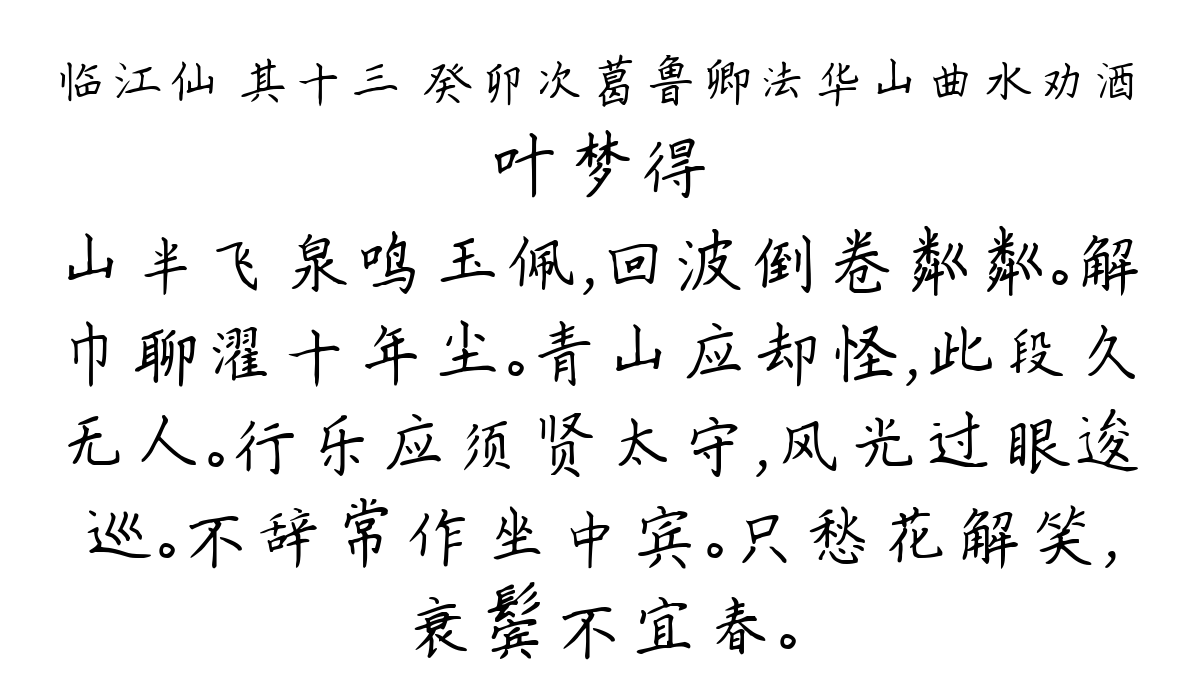 临江仙 其十三 癸卯次葛鲁卿法华山曲水劝酒
叶梦得
山半飞泉鸣玉佩,回波倒卷粼粼。解
巾聊濯十年尘。青山应却怪,此段久
无人。行乐应须贤太守,风光过眼逡
巡。不辞常作坐中宾。只愁花解笑,
衰鬓不宜春。